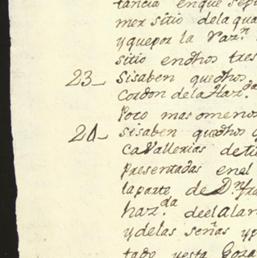 tancia en que sepi
mer sitio dela qua
y que por la Raz.n
sitio en dhos tres
23_ Si saben que dhos
Cordon dela Haz.da
Poco mas o menos
24_ Si saben que dhos
Ca Vallerias de ti
Presentadas en el
la parte de D.n fra
haz.da de el Alar
y delas señas y p
tado y esta Goza